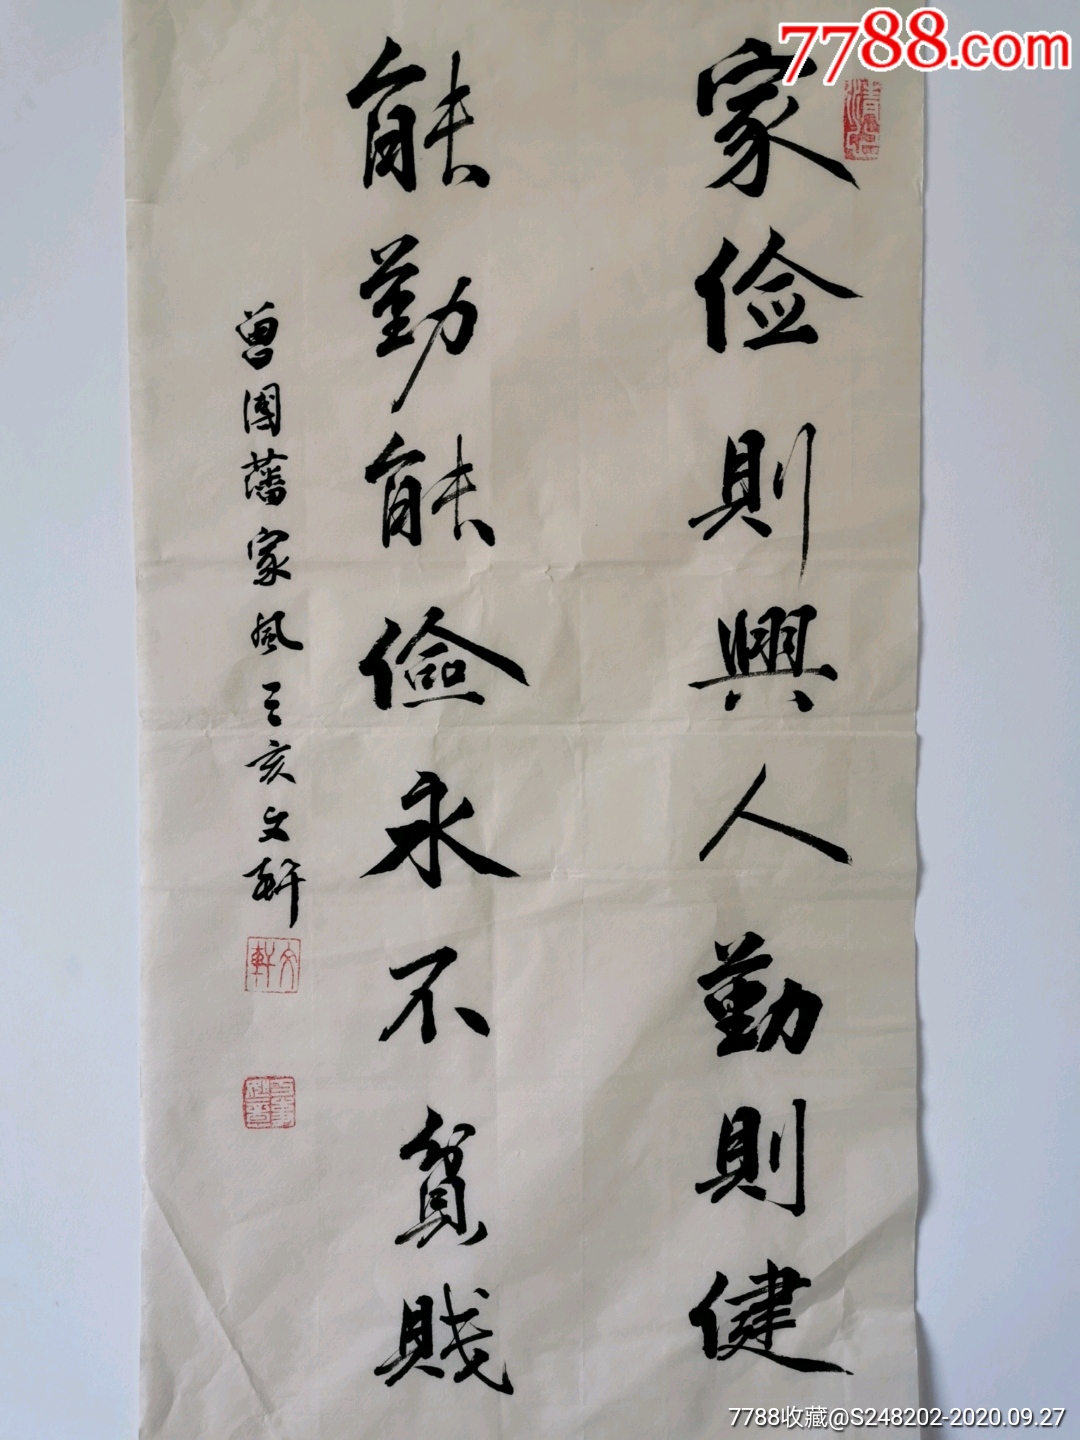 7788.com
家俭則興人勤則健
能勤能儉永不貧賤
曾國藩家風己亥文軒
文軒
7788收藏@S248202-2020.09.27